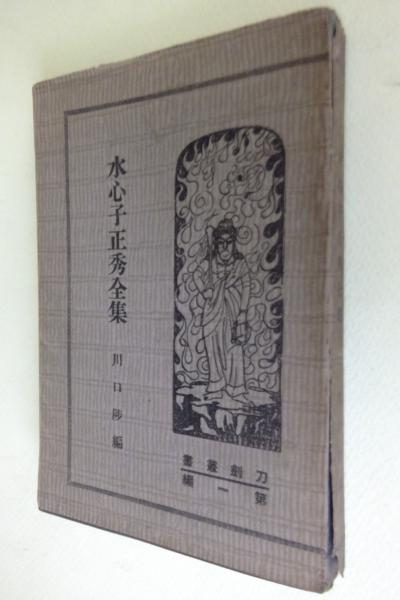 水心子正秀全集
川口陟編
刀劍叢書
第一編